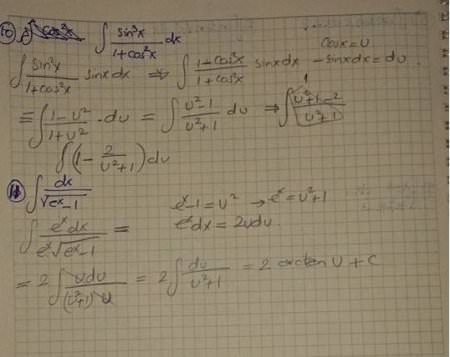 10) ∫ sin³x / (1+cos²x) dx
cosx = u
∫ sin²x / (1+cos²x) sinx dx ⇒ ∫ (1-cos²x) / (1+cos²x) sinx dx   -sinx dx = du
= ∫ (1-u²) / (1+u²) · -du = ∫ (u²-1) / (u²+1) du ⇒ ∫ (u²+1-2) / (u²+1)
∫ (1 - 2/(u²+1)) du
11) ∫ dx / √(eˣ-1)   eˣ-1 = u² → eˣ = u²+1
∫ eˣdx / (eˣ√(eˣ-1)) =   eˣdx = 2udu
= 2 ∫ udu / ((u²+1) u) = 2 ∫ du / (u²+1) = 2 arctan u + c